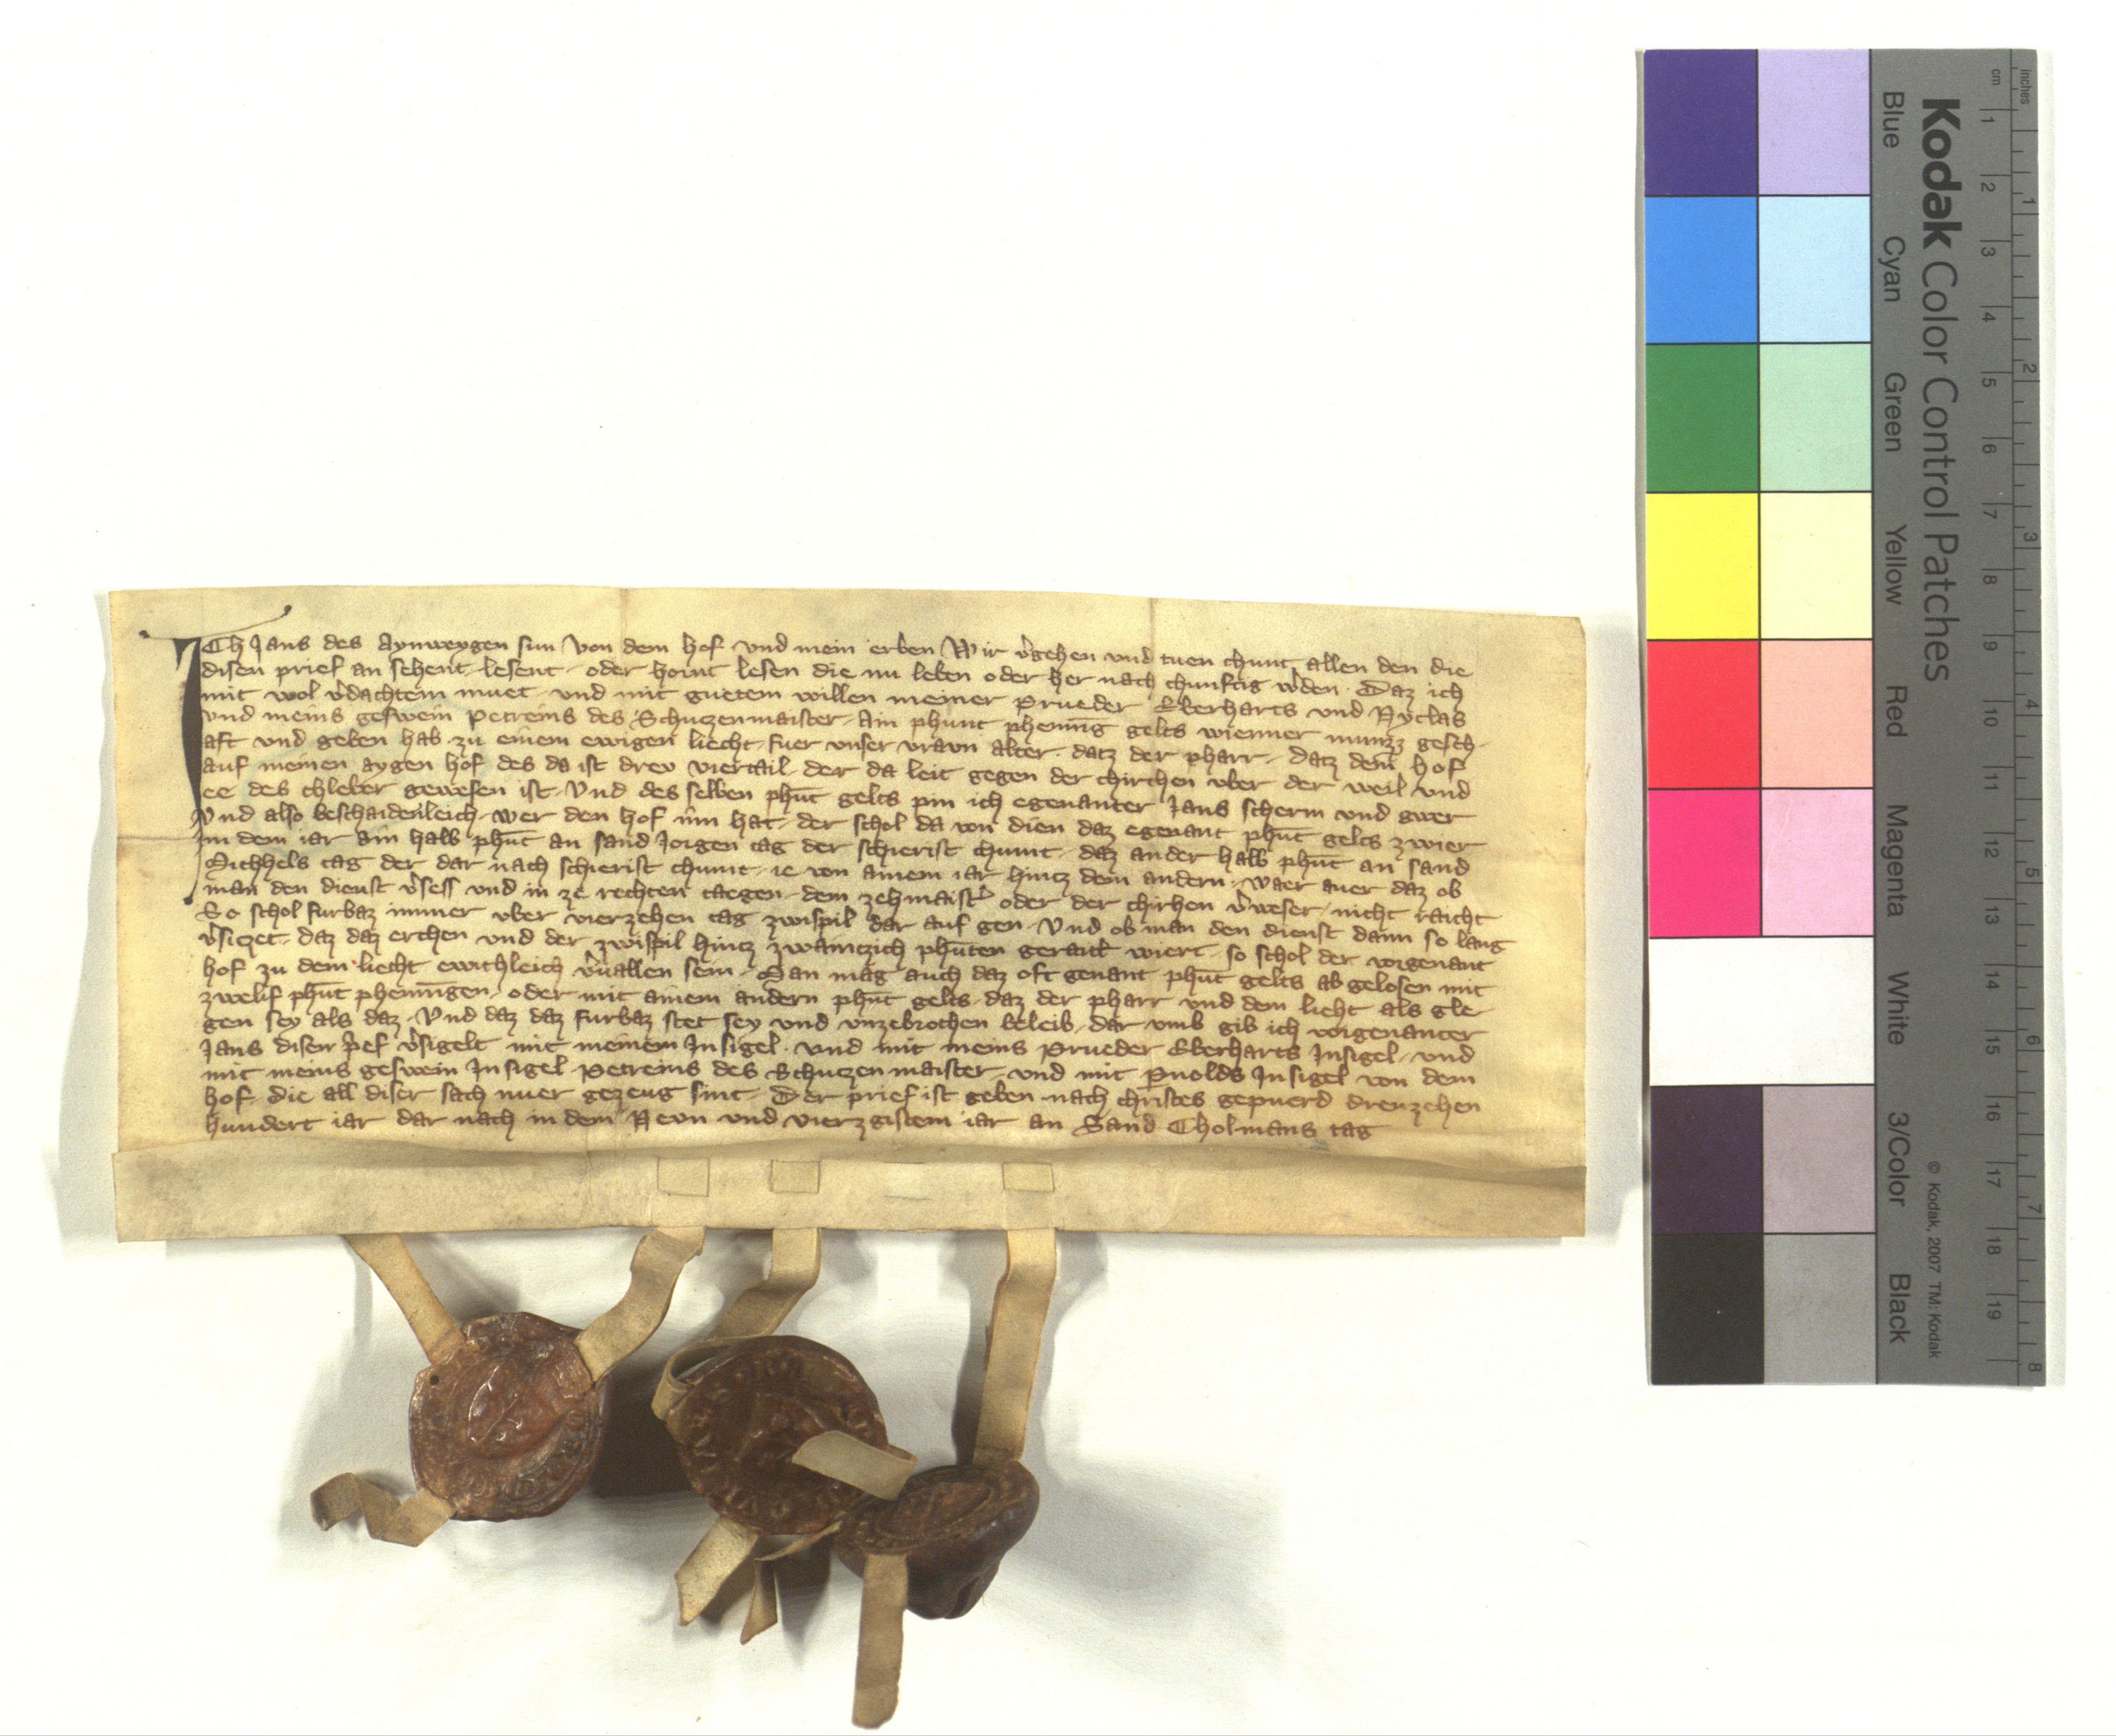 ICh Jans des Aynweygen sun von dem hof vnd mein erben Wir v̾gehen vnd tuen chunt allen den die
disen prief an sehent lesent oder hornt lesen die nu leben oder her nach chunftig w̾den Daz ich
mit wol v̾dachtem muet vnd mit guetem willen meiner Prueder Eberharts vnd Nyclas
vnd meins geswein Petreins des Schutzenmaister Ain phunt phenn̄ig gelts wienner munzz gesch-
aft vnd geben hab zu einem ewigen liecht fuer vnser vravn alter datz der pharr datz dem hof
auf meinen aygen hof des da ist drev viertail der da leit gegen der chirchen vber der weil vnd
ee des chleber gewesen ist Vnd des selben phūt gelts pin ich egenanter Jans scherm vnd gwer
Vnd also beschaidenleich wer den hof inn hat der schol da von dien daz egenant phūt gelts zwier
Jm dem iar ain halb phūt an sand Jorgen tag der schierist chumt daz ander halb phūt an sand
Michhels tag der dar nach schierist chumt ie von ainem iar hintz dem andern waer auer daz ob
man den dienst v̾sess vnd in ze rechten taegen dem zehmaist̾ oder der chirhen v̾weser nicht raicht
So schol furbaz immer vber vierzehen tag zwispil dar auf gen Vnd ob man den dienst dann so lang
v̾siczet daz daz erchen vnd der zwispil hintz zwaintzich phūten geraitt wiert so schol der vorgenant
hof zu dem liecht ewichleich v̾uallen sein Man mag auch daz oft genant phūt gelts ab gelosen mit
zwelif phūt phenn̄igen oder mit ainem andern phūt gelts daz der pharr vnd dem lieht als gle
gen sey als daz Vnd daz daz furbaz stet sey vnd vnzebrochen beleib dar vmb gib ich vorgenanter
Jans disen p̾ef v̾sigelt mit meinem Jnsigel vnd mit meins Prueder Eberharts Jnsigel vnd
mit meins geswein Jnsigel Petreins des Schutzenmaister vnd mit Pnolds Jnsigel von dem
hof die all diser sach nuer gezeug sint Der prief ist geben nach christes gepuerd drenzehen
hundert iar dar nach in dem Nevn vnd vierzgistem iar an Sand Cholmans tag
Kodak Color Control Patches
© Kodak, 2007 TM: Kodak
Blue Cyan Green Yellow Red Magenta White 3/Color Black
cm 1 2 3 4 5 6 7 8 9 10 11 12 13 14 15 16 17 18 19
inches 1 2 3 4 5 6 7 8